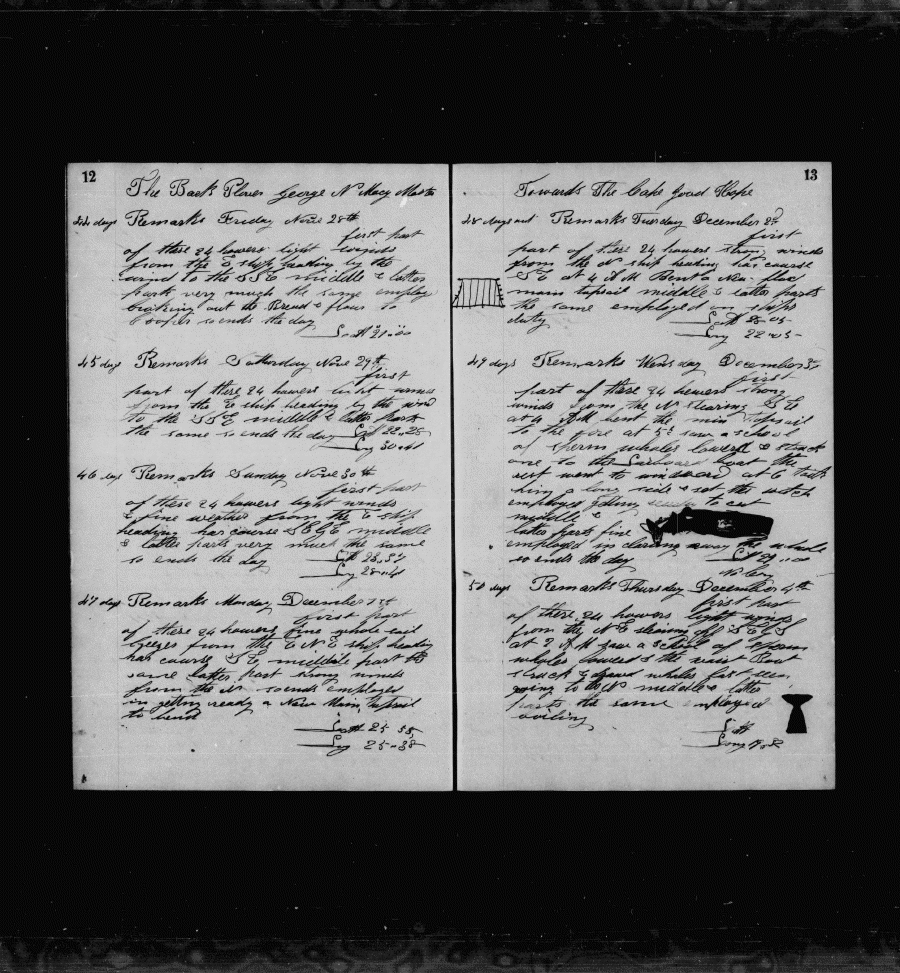 12
The Bark Plover George N Macy Master
44 days Remarks Friday Nove 28th
first part
of these 24 howers light winds
from the E ship heading by the
wind to the SSE middle & latter
part very much the same employ
breaking out the Bread & flour to
so ends the day
Latt 21"00
45 days Remarks Satturday Nove 29th
first
part of these 24 howers light winds
from the E ship heading by the wind
to the SSE middle & latter part
the same so ends the day Latt 22"25
Lon 30
46 days Remarks Sunday Nove 30th
first part
of these 24 howers light winds
& fine weather from the E ship
heading her course SEbE middle
& latter parts very much the same
so ends the day
Lon 28
47 days Remarks Monday December 1st
first part
of these 24 howers fine whole sail
breezes from the ENE ship heading
her course SE middle part the
same latter part strong winds
from the N so ends employed
in getting ready a New Main topsail
to bend
Latt 25 55
Lon 25"38
13
Towards The Cape Good Hope
48 days out Remarks Tuesday December 2d
first
part of these 24 howers strong winds
from the N ship heading her course
SE at 4 AM Bent a New
main topsail middle & latter parts
the same employed in ships
duty
Lon 22"05
49 days Remarks Wensday December 3d
first
part of these 24 howers strong
winds from the N stearing
AM bent the main topsail
to the yard at saw a school
of sperm whales lowered & struck
one to the Larboard boat the
rest went to windward at 6
set the watch
employed
middle &
latter parts fine
employed in clearing away the whale
so ends the day Latt 29
No Lon
50 days Remarks Thursday December 4th
first part
of these 24 howers light winds
from the NE stearing off SEbS
at 7 AM saw a school of sperm
whales lowered & the waist Boat
struck & saved whales
going to the N middle & latter
parts the same employed
boiling
Latt
Long